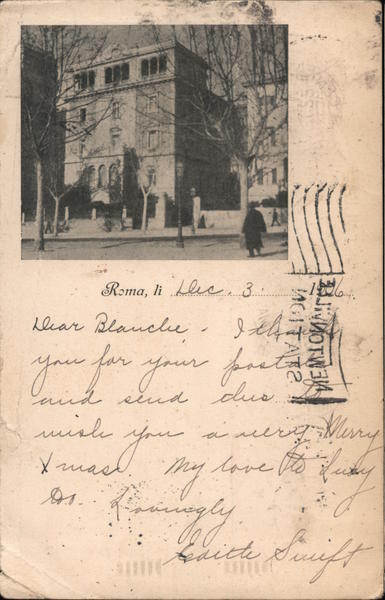 Roma, li Dec. 3. 1
Dear Blanche - I thank
you for your post
and send this
wish you a very Merry
Xmas. My love to Lucy
Do. Lovingly
Edith Swift
STATION